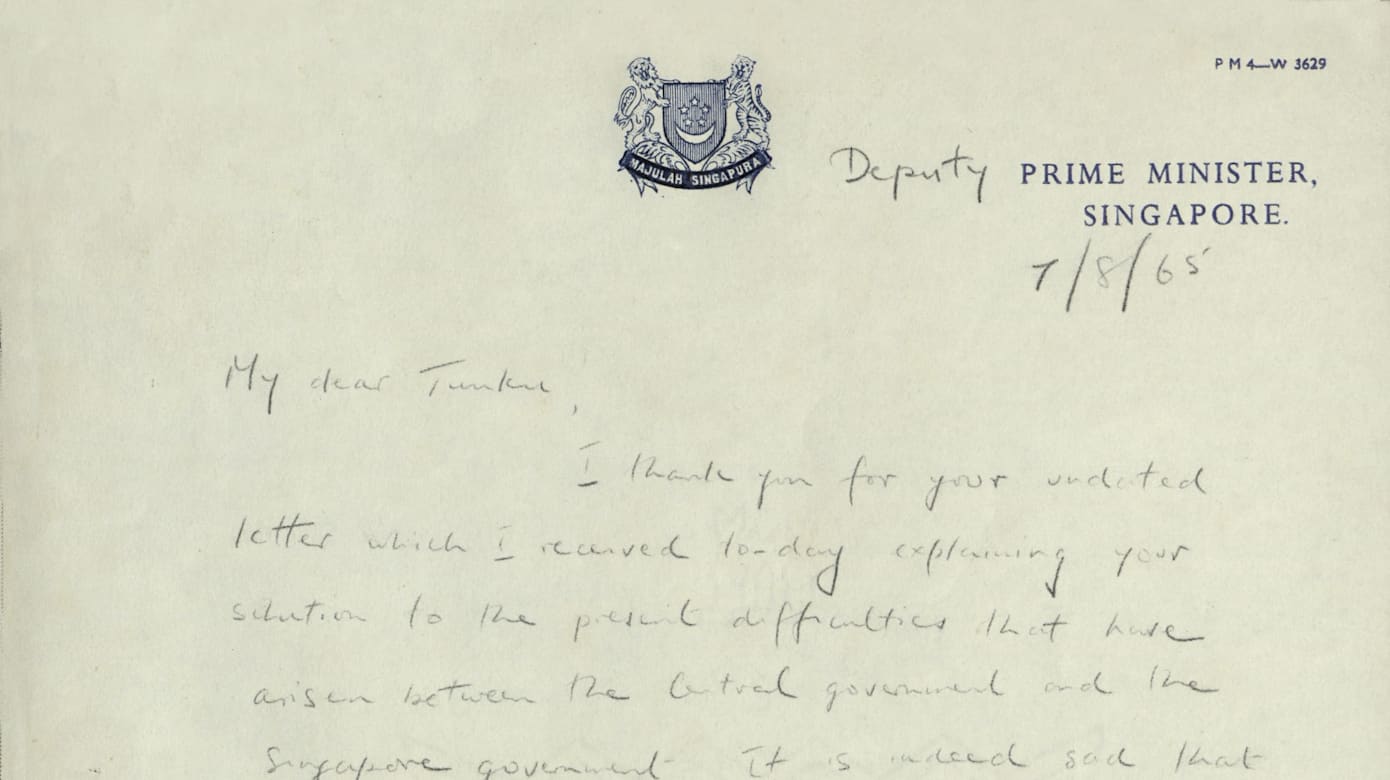 P M 4—W 3629
MAJULAH SINGAPURA
Deputy PRIME MINISTER,
SINGAPORE.
7/8/65
My dear Tunku,
I thank you for your undated
letter which I received to-day explaining your
solution to the present difficulties that have
arisen between the Central government and the
Singapore government. It is indeed sad that